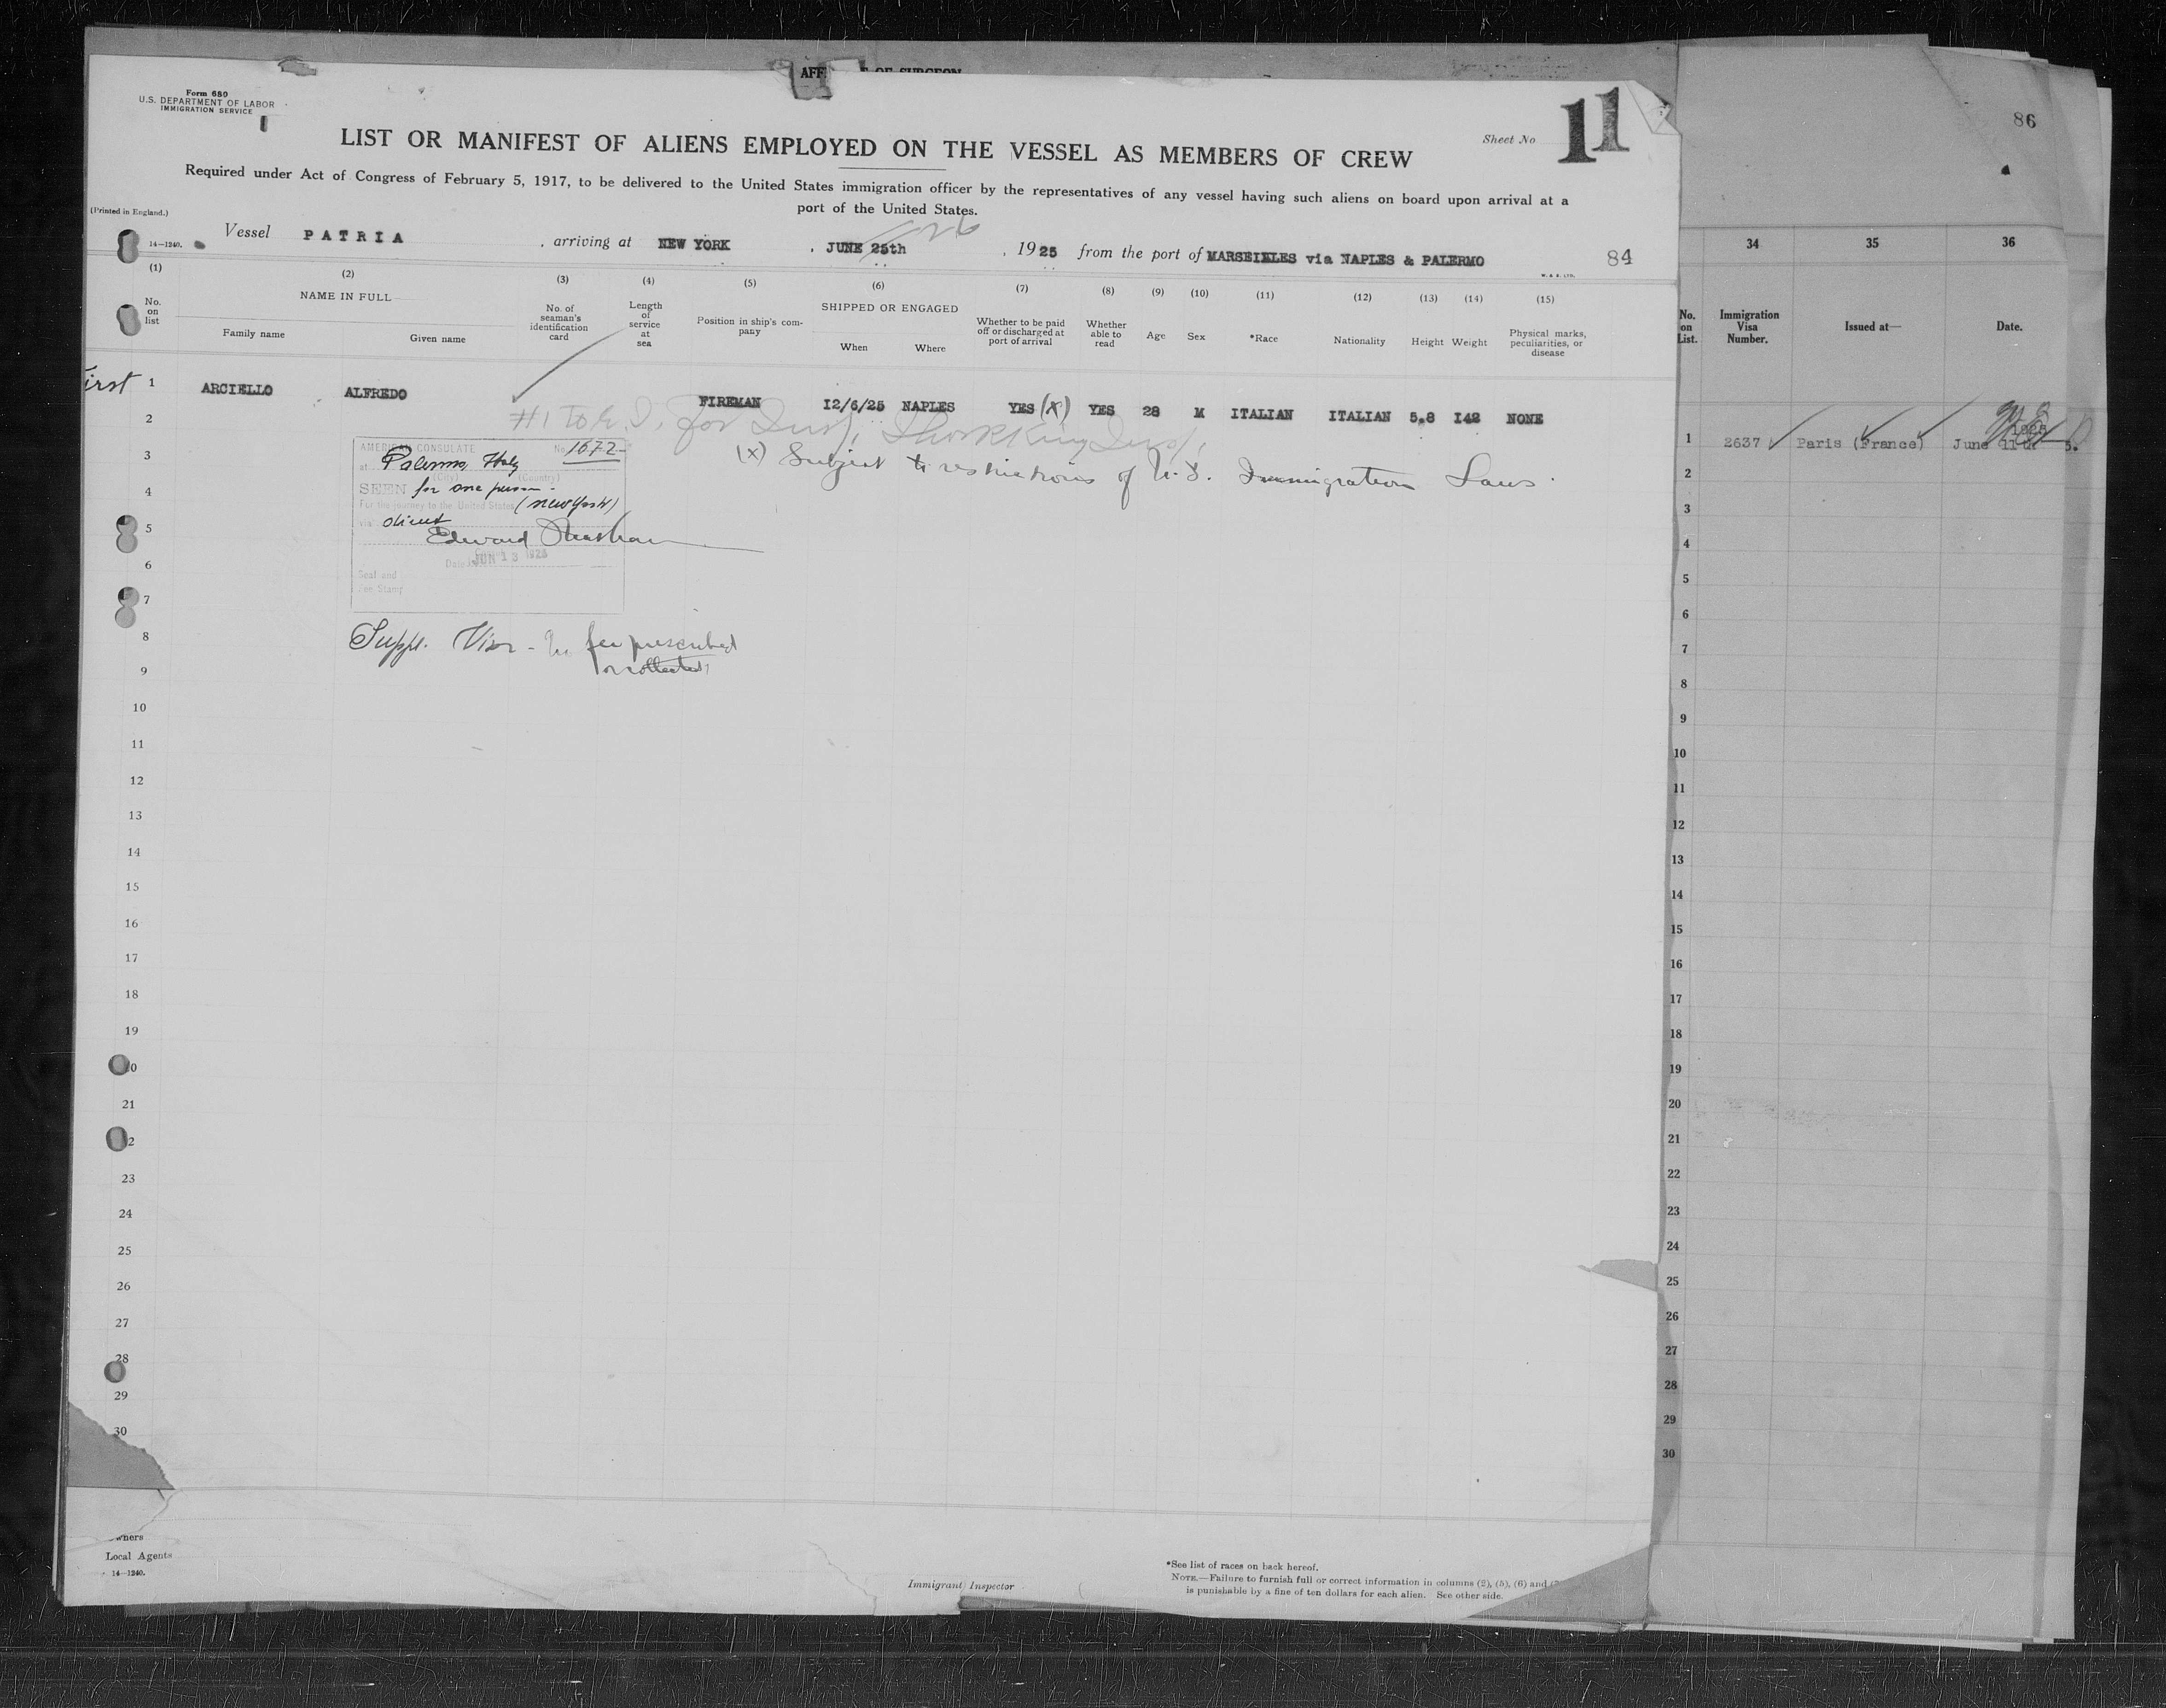 AFF E OF SURGEON
Form 680
U.S. DEPARTMENT OF LABOR
IMMIGRATION SERVICE
Sheet No 11
LIST OR MANIFEST OF ALIENS EMPLOYED ON THE VESSEL AS MEMBERS OF CREW
Required under Act of Congress of February 5, 1917, to be delivered to the United States immigration officer by the representatives of any vessel having such aliens on board upon arrival at a
port of the United States.
(Printed in England.)
14—1240.
Vessel PATRIA , arriving at NEW YORK , JUNE 25th , 1925 from the port of MARSEILLES via NAPLES & PALERMO
84
W. & S. LTD.
(1) (2) (3) (4) (5) (6) (7) (8) (9) (10) (11) (12) (13) (14) (15)
No. on list
NAME IN FULL
Family name Given name
No. of seaman's identification card
Length of service at sea
Position in ship's company
SHIPPED OR ENGAGED
When Where
Whether to be paid off or discharged at port of arrival
Whether able to read
Age
Sex
*Race
Nationality
Height
Weight
Physical marks, peculiarities, or disease
First 1 ARCIELLO ALFREDO FIREMAN 12/6/25 NAPLES YES (X) YES 28 M ITALIAN ITALIAN 5.8 142 NONE
#1 To E. I. for
(X) Subject to restrictions of U.S. Immigration Laws.
AMERICAN CONSULATE No 1672
at Palermo, Italy
(City) (Country)
SEEN for one person.
For the journey to the United States (New York)
via direct
Edward
Date JUN 13 1925
Seal and
Fee Stamp
Suppl. Visa - No fee prescribed
or collected
2
3
4
5
6
7
8
9
10
11
12
13
14
15
16
17
18
19
20
21
22
23
24
25
26
27
28
29
30
wners
Local Agents
14—1240.
Immigrant Inspector
*See list of races on back hereof.
NOTE.—Failure to furnish full or correct information in columns (2), (5), (6) and (7)
is punishable by a fine of ten dollars for each alien. See other side.
86
34 35 36
No. on List.
Immigration Visa Number.
Issued at—
Date.
1 2637 Paris (France) June 11th
1925
2
3
4
5
6
7
8
9
10
11
12
13
14
15
16
17
18
19
20
21
22
23
24
25
26
27
28
29
30